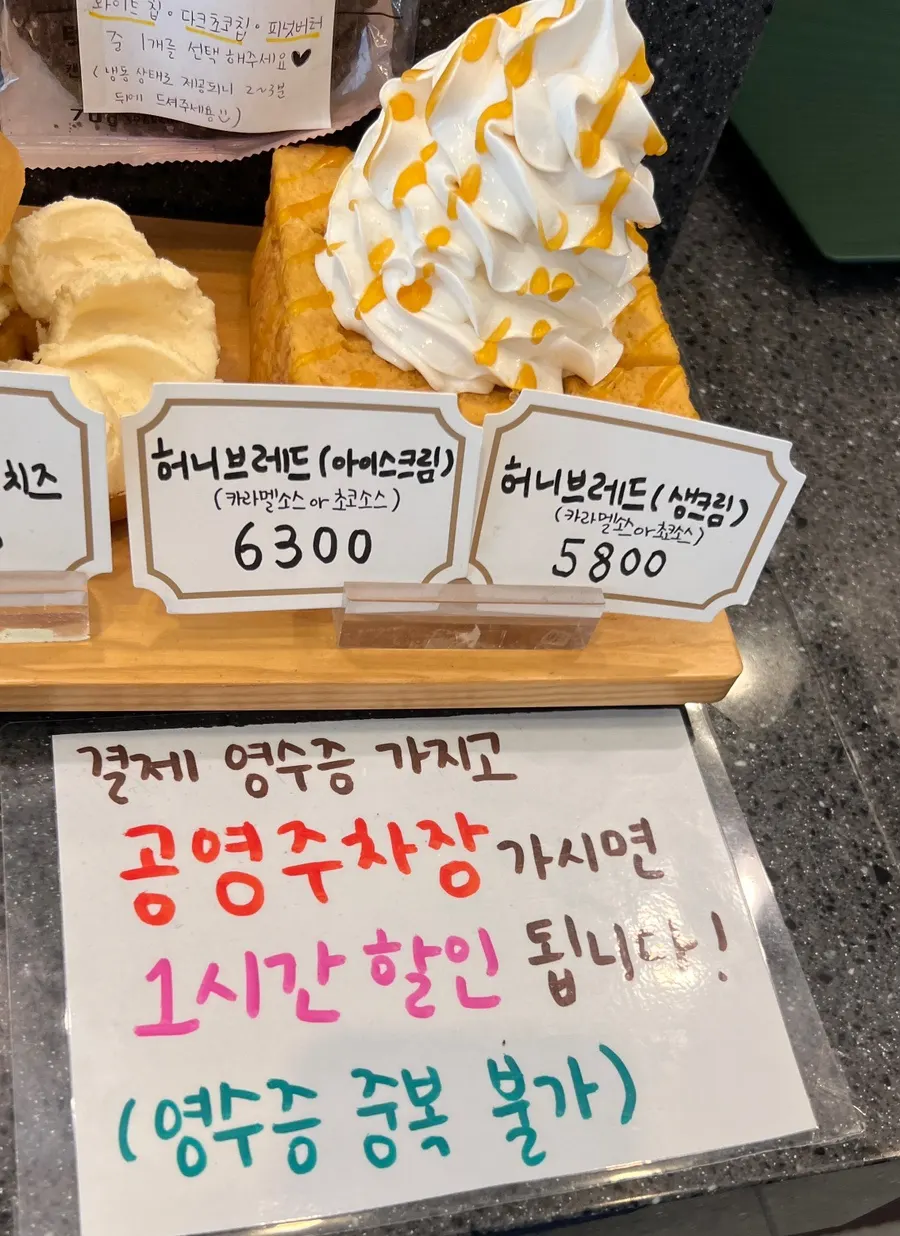 화이트칩 · 다크초코칩 · 피넛버터
중 1개를 선택 해주세요♥
(냉동상태로 제공되니 2~3분
뒤에 드셔주세용☺)
70g
치즈
허니브레드(아이스크림)
(카라멜소스 or 초코소스)
6300
허니브레드(생크림)
(카라멜소스 or 초코소스)
5800
결제 영수증 가지고
공영주차장 가시면
1시간 할인 됩니다!
(영수증 중복 불가)